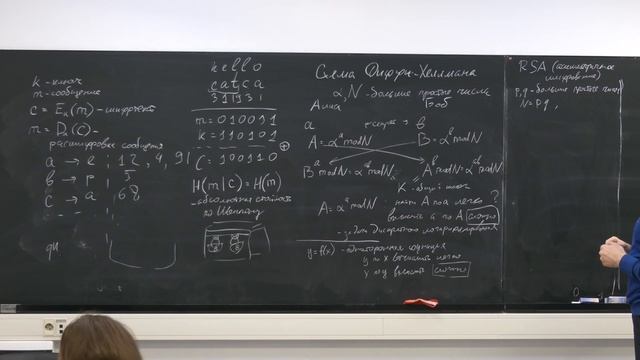 k - ключ
m - сообщение
c = E_k(m) - шифртекст
m = D_k(c) -
расшифровка сообщения
a → e ; 12, 4, 91
b → p ; 5
c → a ; 68
hello
catca
31131
m = 010011
k = 110101
⊕
C: 100110
H(m|c) = H(m)
- абсолютная стойкость
по Шеннону
Схема Диффи-Хеллмана
α, N - большие простые числа
Алиса
Боб
a
b
A = α^a mod N
B = α^b mod N
B^a mod N = α^ab mod N
A^b mod N = α^ab mod N
K - общий ключ
A = α^a mod N
найти A по a легко ?
вычислить a по A сложно
- задача дискретного логарифмирования
y = f(x) - односторонняя функция
y по x вычислить легко
x по y вычислить сложно
RSA (асимметричное
шифрование)
p, q - большие простые числа
N = p·q ,